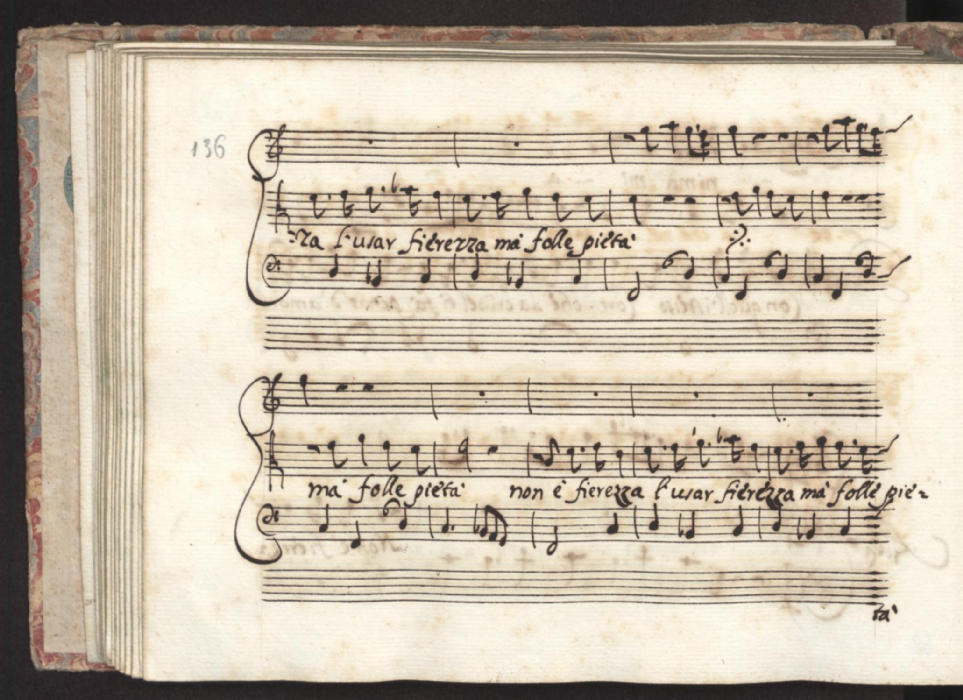 136
za l'usar fierezza má folle pietá
má folle pietá non è fierezza l'usar fierezza má folle pie=
tá